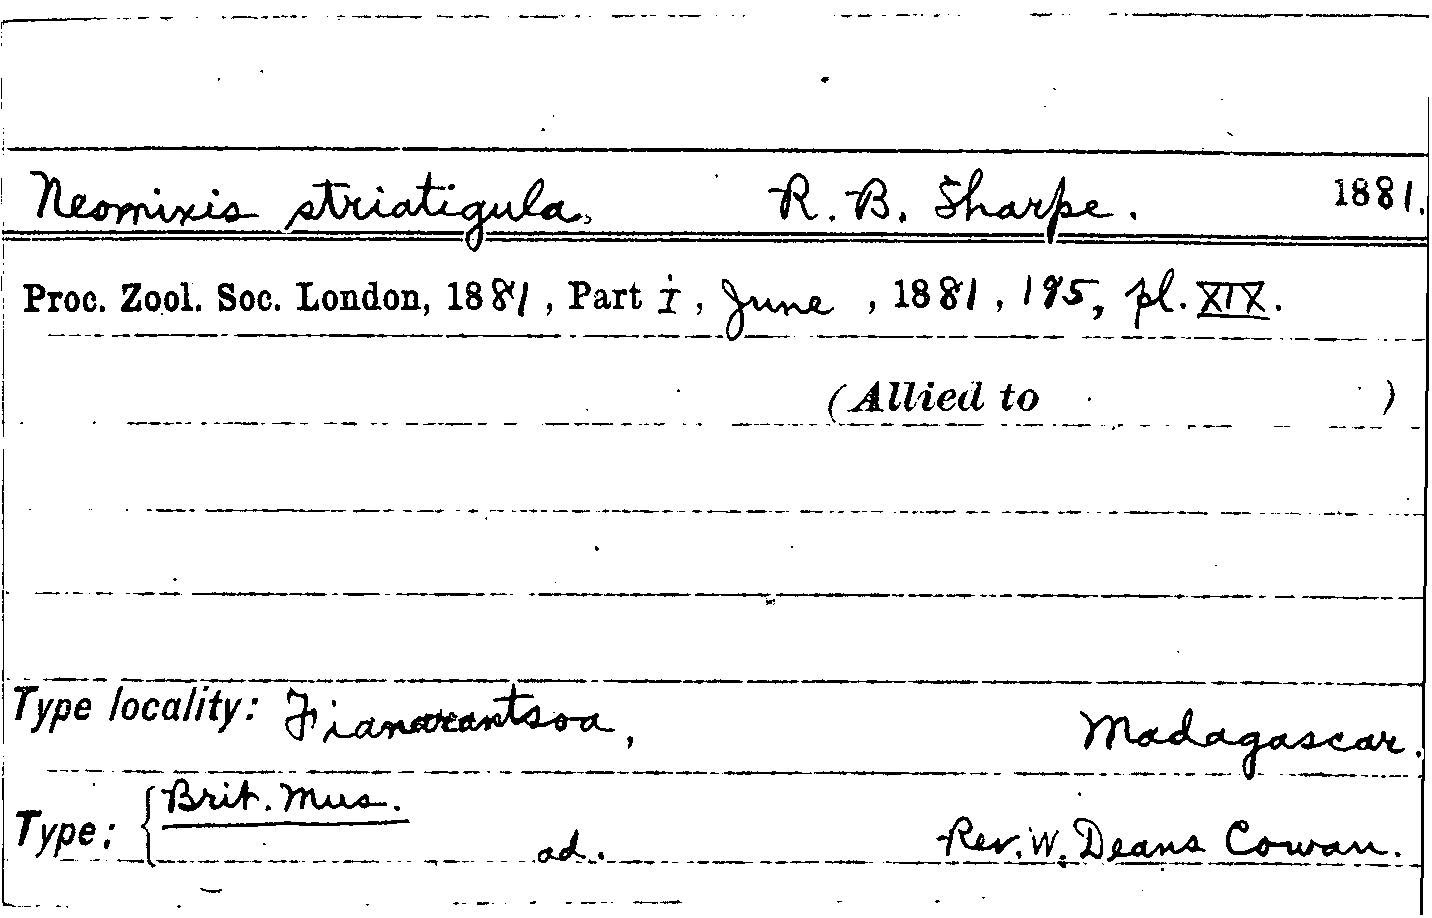 Neomixis striatigula, R. B. Sharpe. 1881.
Proc. Zool. Soc. London, 1881, Part i, June, 1881, 195, pl. XIX.
(Allied to )
Type locality: Fianarantsoa, Madagascar.
Type: { Brit. Mus.
ad. Rev. W. Deans Cowan.